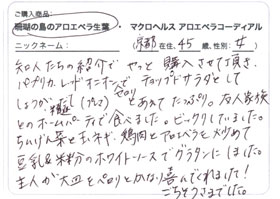 ご購入商品：
珊瑚の島のアロエベラ生葉 ・ マクロヘルス アロエベラコーディアル
ニックネーム： （京都 在住・45 歳・女）
知人たちの紹介で やっと購入させて頂き、
パプリカ、レッドオニオンで チョップドサラダとして
しょうが セロリ とあわてたっぷり。友人家族
とのホームパーティで食べました。ビックリしていました。
ちんげん菜と玉ネギ、鶏肉とアロエベラを炒めて
豆乳＆米粉のホワイトソースでグラタンにしました。
主人が大皿をペロリとかなり喜んでくれました！
ごちそうさまでした。